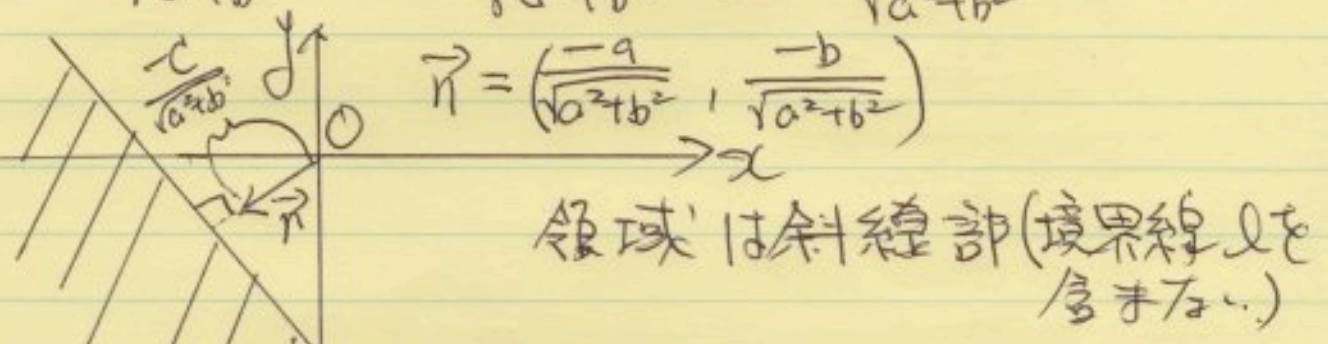 √a²+b²
y
c/√a²+b²
n⃗ = (-a/√a²+b² , -b/√a²+b²)
O
x
n⃗
領域は斜線部(境界線lを
含まない.)